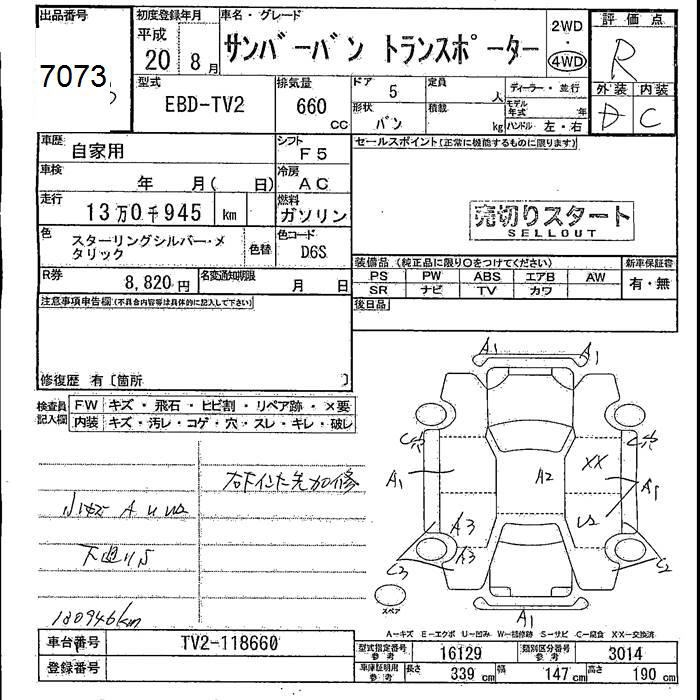 出品番号
7073
初度登録年月
平成
20 8月
車名・グレード
サンバーバン トランスポーター
2WD
・
4WD
評価点
R
外装 内装
D C
型式
EBD-TV2
排気量
660
CC
ドア 5
定員 人
形状 バン
積載 kg
ディーラー・並行
モデル年式 年
ハンドル 左・右
車歴
自家用
シフト
F5
セールスポイント(正常に機能するものに限ります)
車検
年 月( 日)
冷房
AC
走行
13万0千945 km
燃料
ガソリン
売切りスタート
SELLOUT
色
スターリングシルバー・メタリック
色替
色コード
D6S
装備品(純正品に限り○をつけてください)
新車保証書
PS PW ABS エアB AW
SR ナビ TV カワ
有・無
R券
8,820円
名変通知期限
月 日
後日品
注意事項申告欄(不具合内容等は具体的に記入して下さい)
修復歴 有〔箇所 〕
検査員記入欄
FW キズ・飛石・ヒビ割・リペア跡・×要
内装 キズ・汚レ・コゲ・穴・スレ・キレ・破レ
A1 A1
A1
A2
XX
A1
A3
A3
C3
C2
A1
スペア
130946km
A-キズ E-エクボ U-凹み W-補修跡 S-サビ C-腐食 XX-交換済
車台番号
TV2-118660
登録番号
型式指定番号 参考 16129
類別区分番号 参考 3014
車庫証明用 参考 長さ 339cm 幅 147cm 高さ 190cm